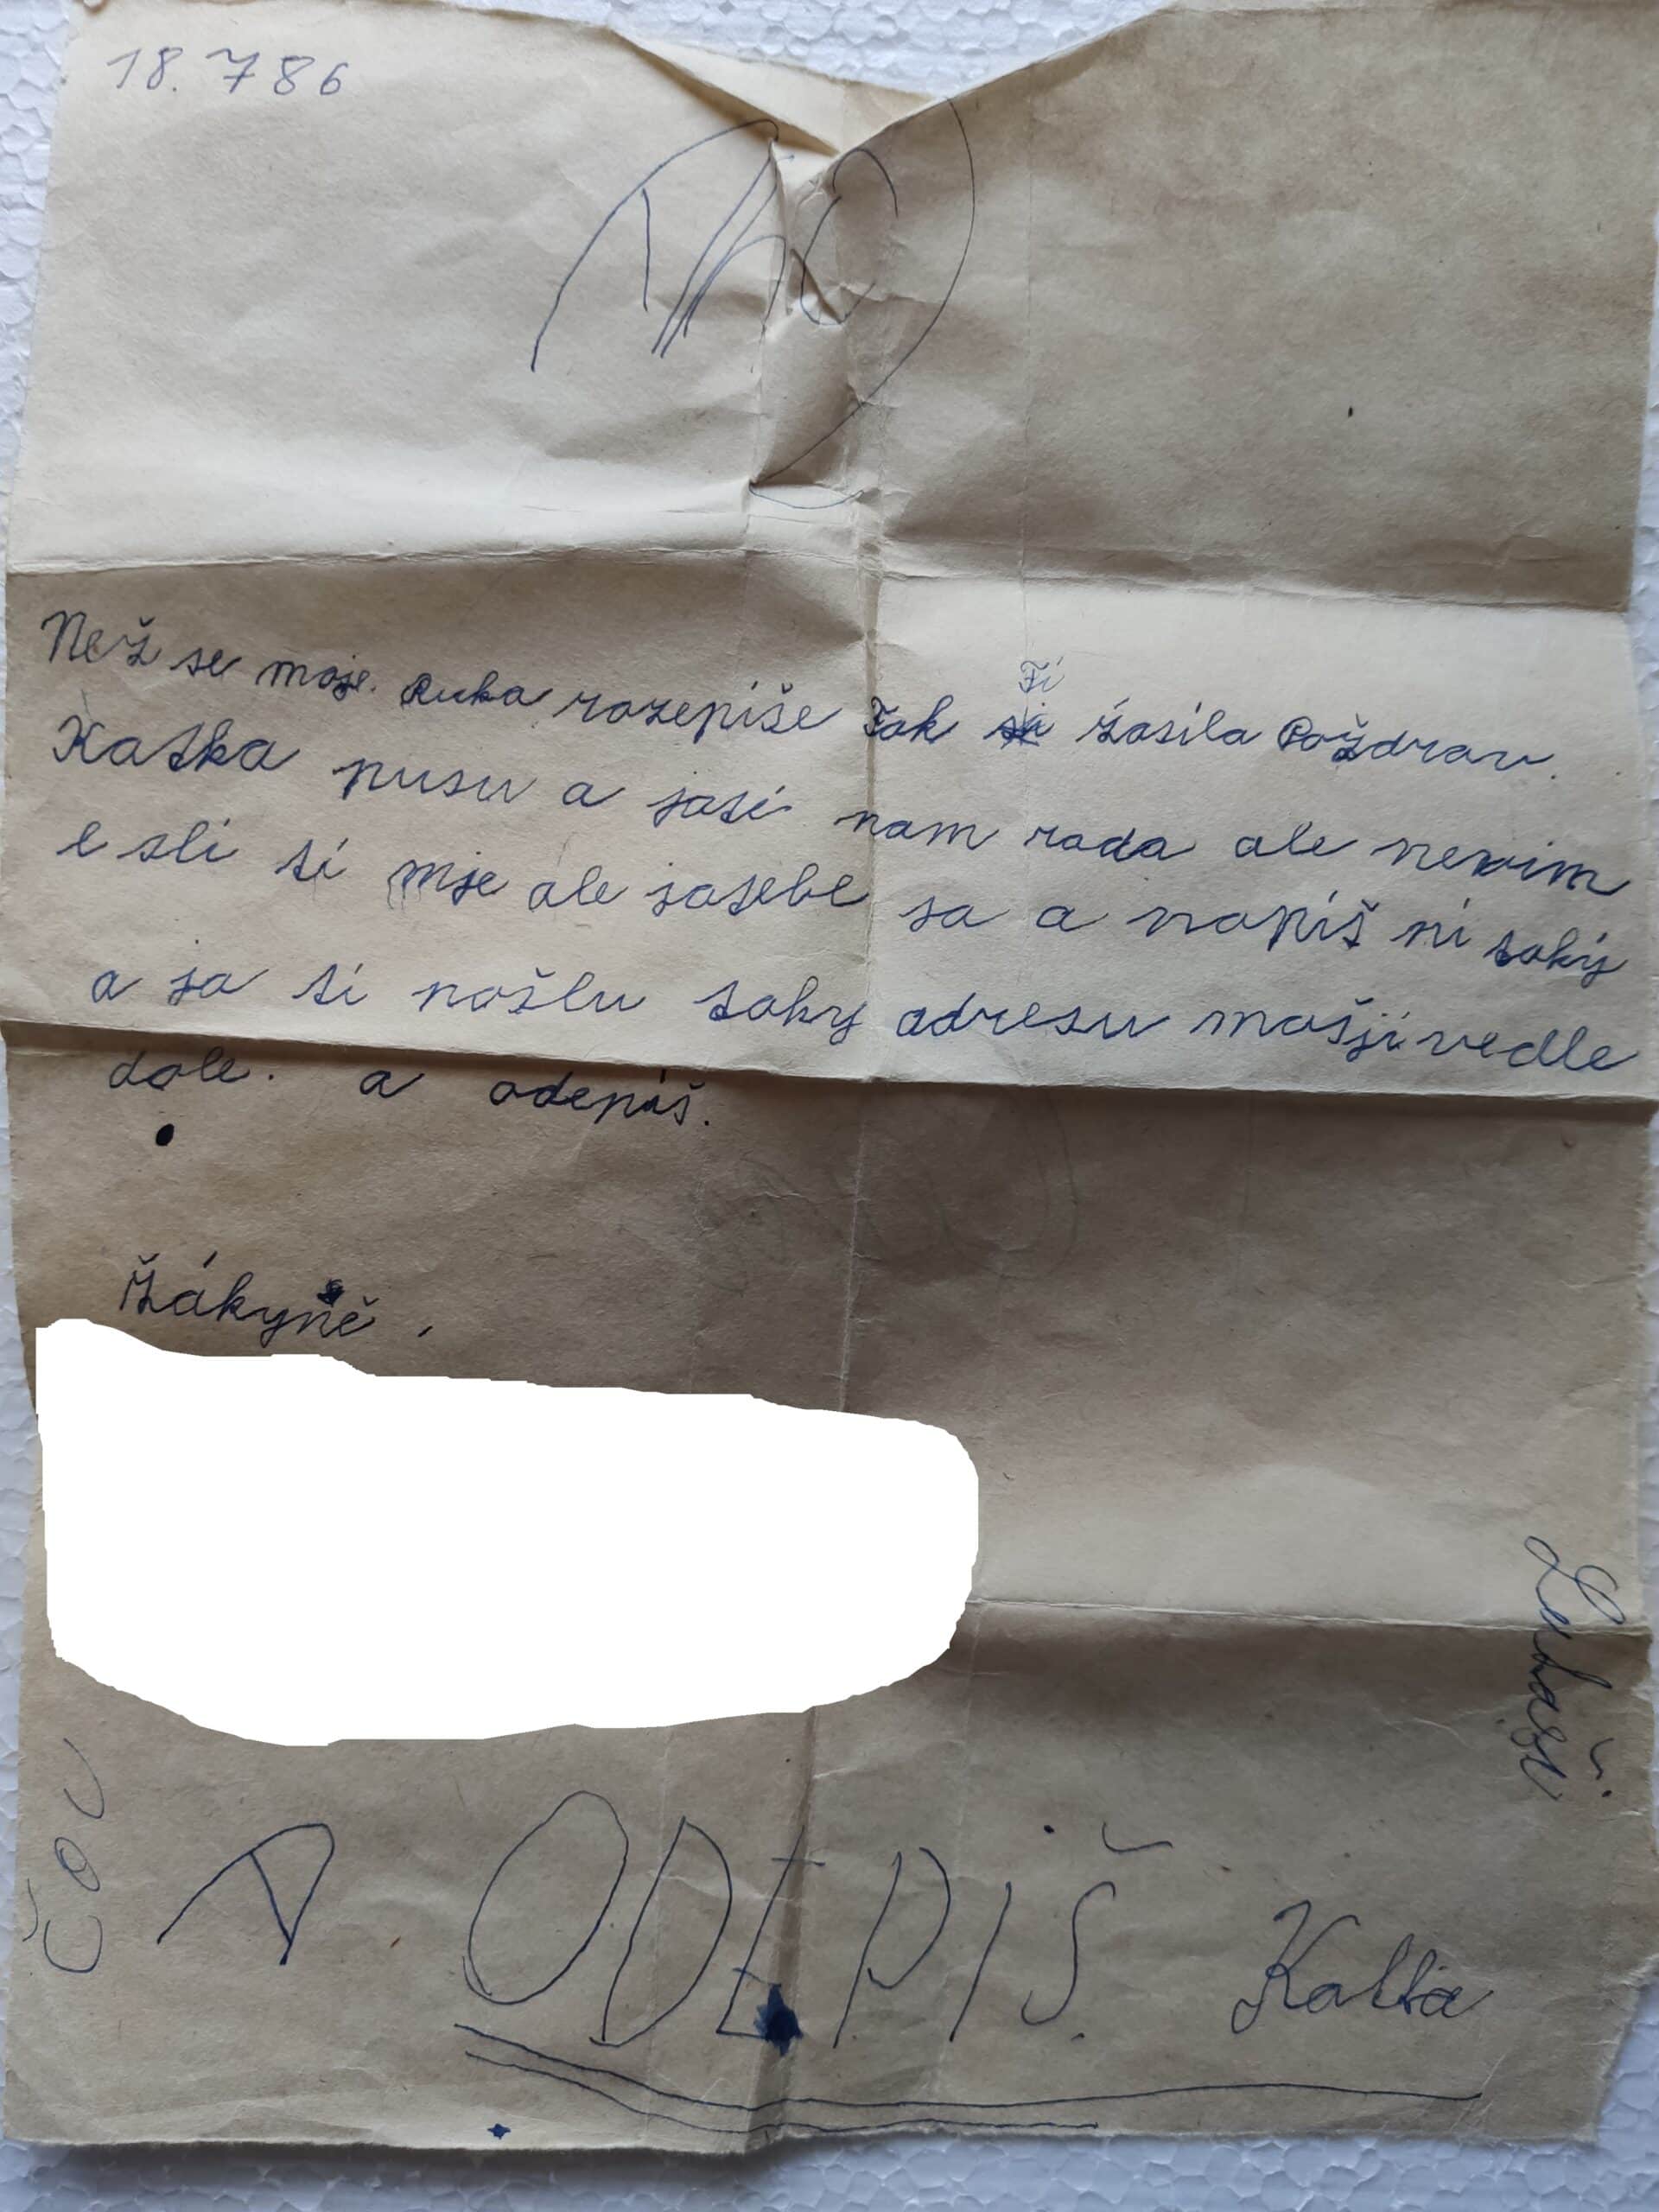 18. 786
Než se moje. Ruka rozepíše Tak Ti Zasíla Poždrav.
Katka pusu a jatě mam rada ale nevim
esli ti mje ale jatebe ja a napiš mi taky
a ja ti pošlu taky adresu mašji vedle
dole. a odepiš.
Žákyně.
ČOU
A ODEPIŠ. Katka